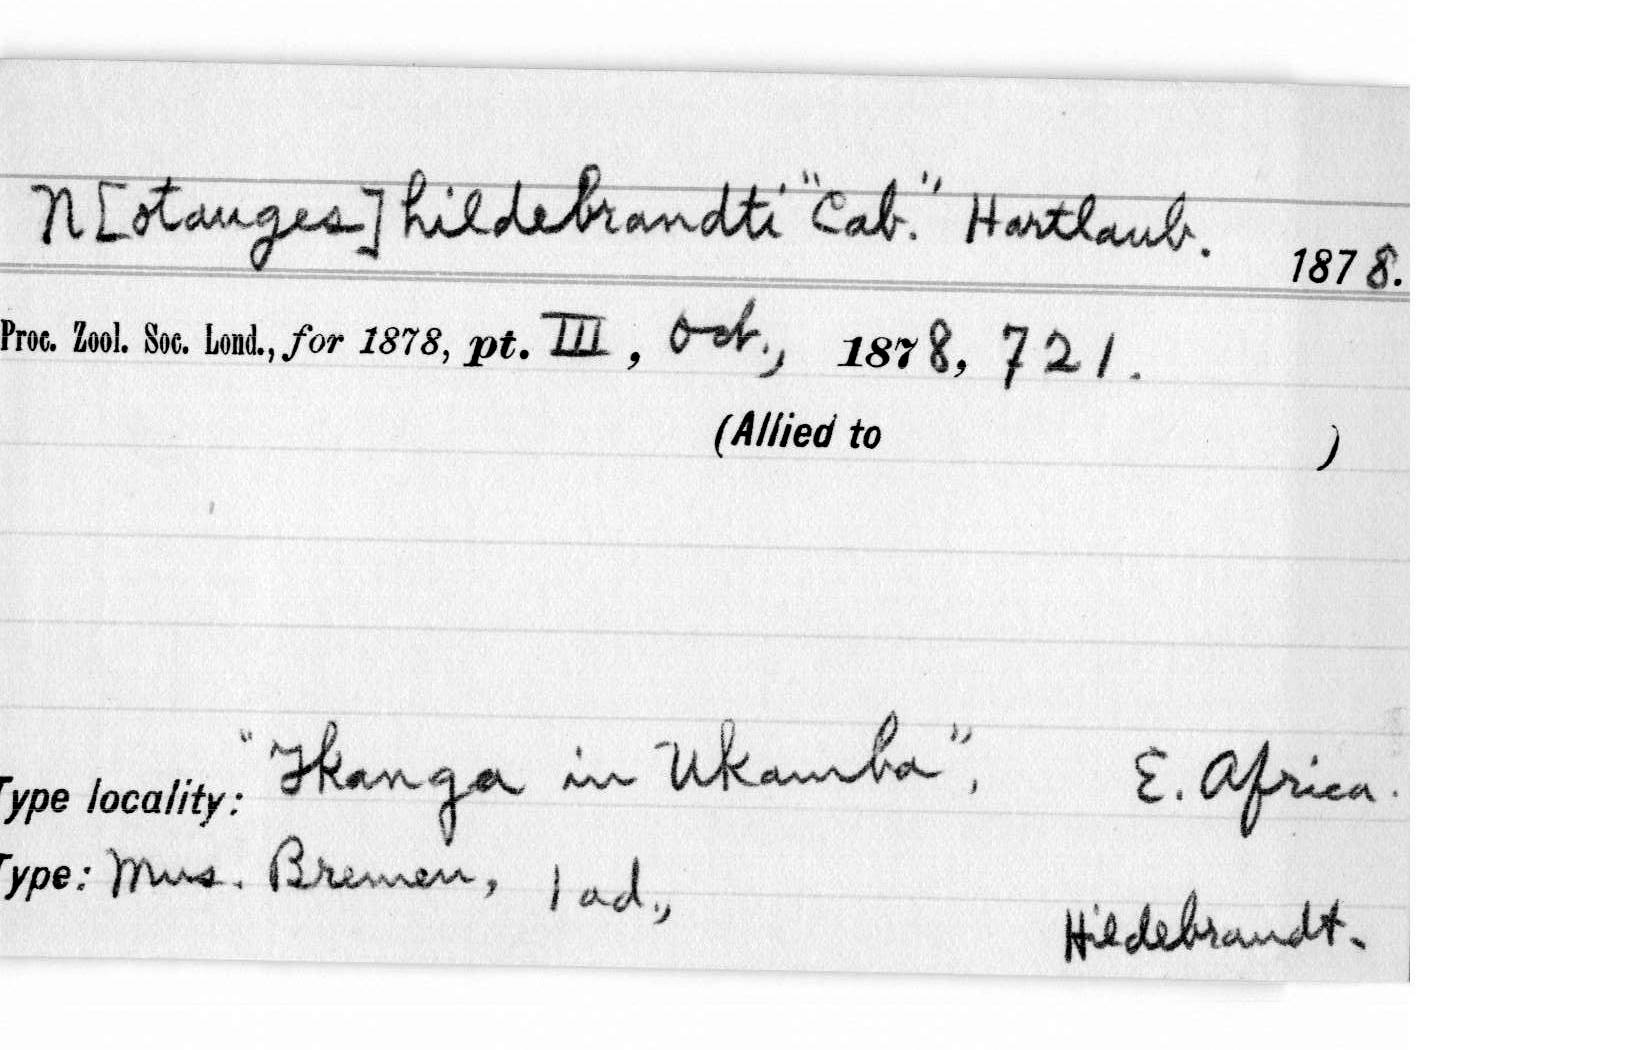 N[otauges] hildebrandti "Cab." Hartlaub. 1878.
Proc. Zool. Soc. Lond., for 1878, pt. III, Oct., 1878, 721.
(Allied to )
Type locality: "Ikanga in Ukamba", E. Africa.
Type: Mus. Bremen, 1 ad.,
Hildebrandt.